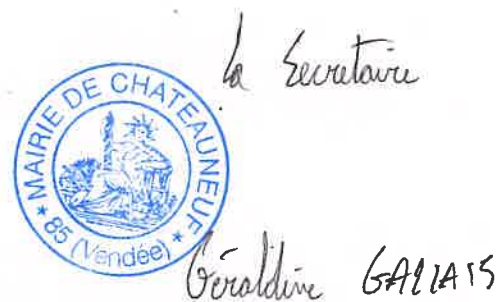 La Secretaire
MAIRIE DE CHATEAUNEUF
* 85 (Vendée) *
Géraldine